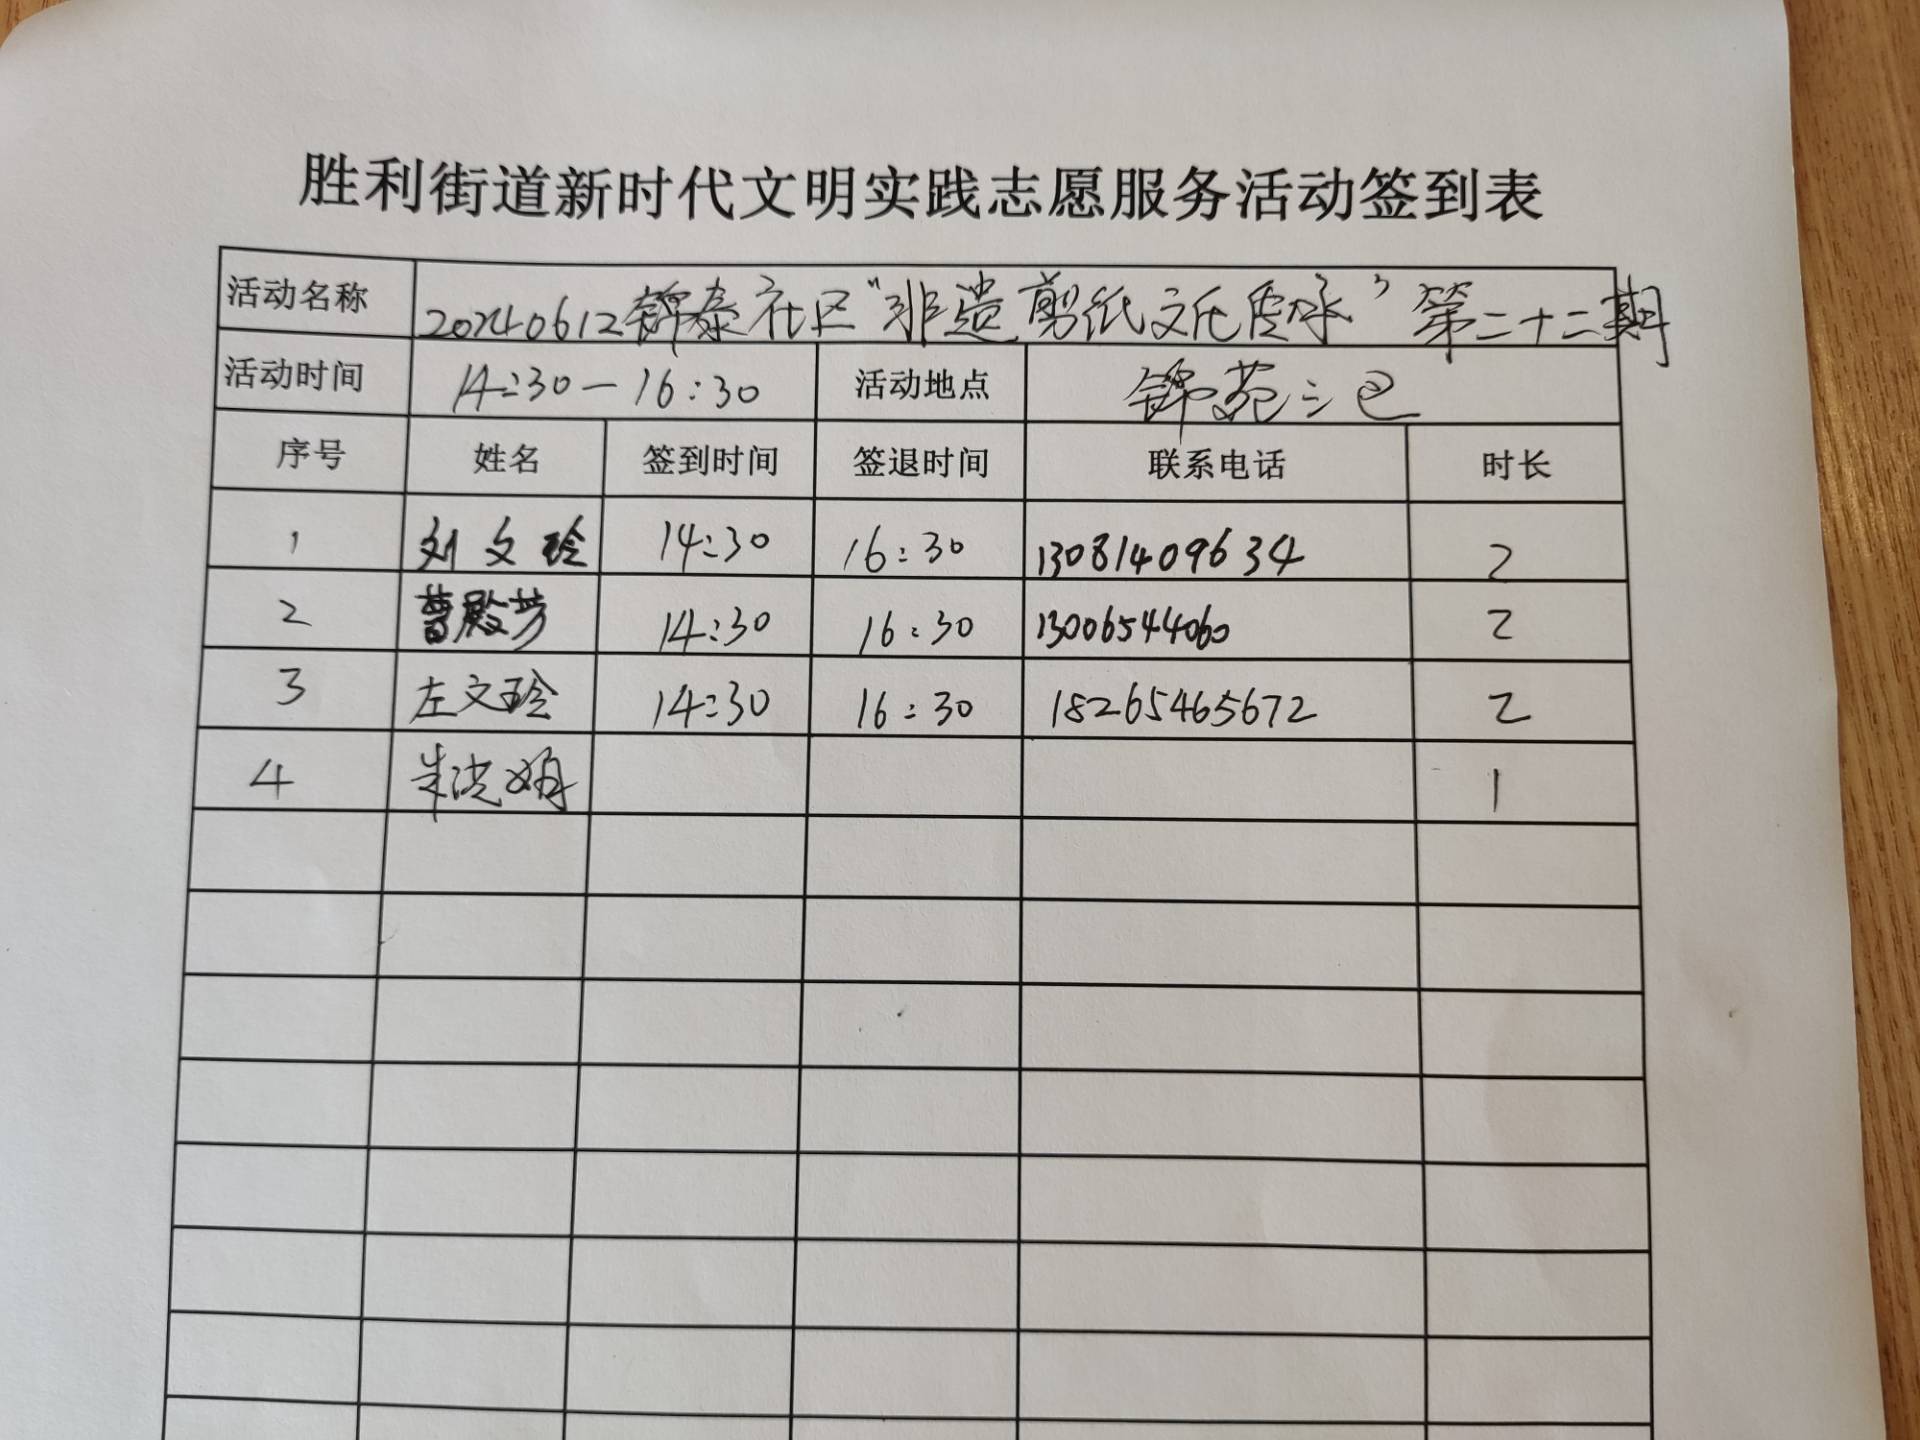 胜利街道新时代文明实践志愿服务活动签到表
活动名称 20240612锦泰社区“非遗剪纸文化传承”第二十二期
活动时间 14:30-16:30 活动地点 锦苑三区
序号 姓名 签到时间 签退时间 联系电话 时长
1 刘文玲 14:30 16:30 13081409634 2
2 曹殿芳 14:30 16:30 13006544060 2
3 左文玲 14:30 16:30 18265465672 2
4 朱洪娟 1